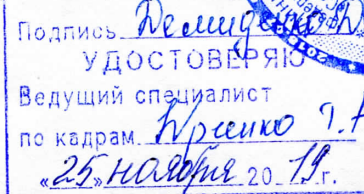 Подпись Демиденко Д
УДОСТОВЕРЯЮ
Ведущий специалист
по кадрам Т.А
«25» ноября 2019г.